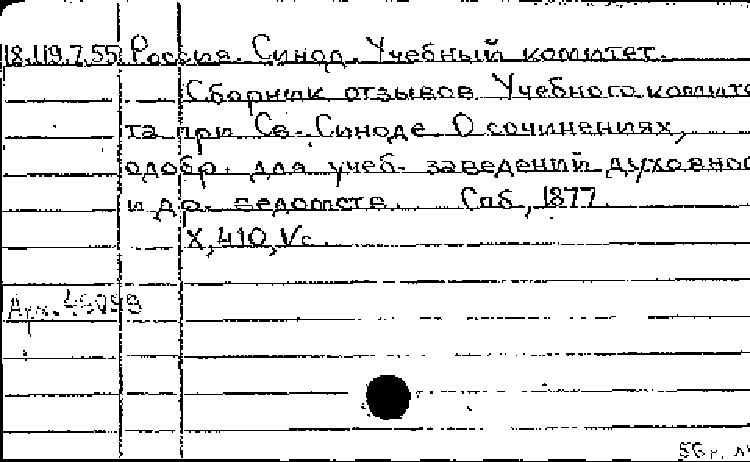 18.119.7.55 Россия. Синод. Учебный комитет.
Сборник отзывов Учебного комите
та при Св. Синоде О сочинениях,
одобр. для учеб. заведений духовног
и др. ведомств. Спб., 1877.
X, 410, V с.